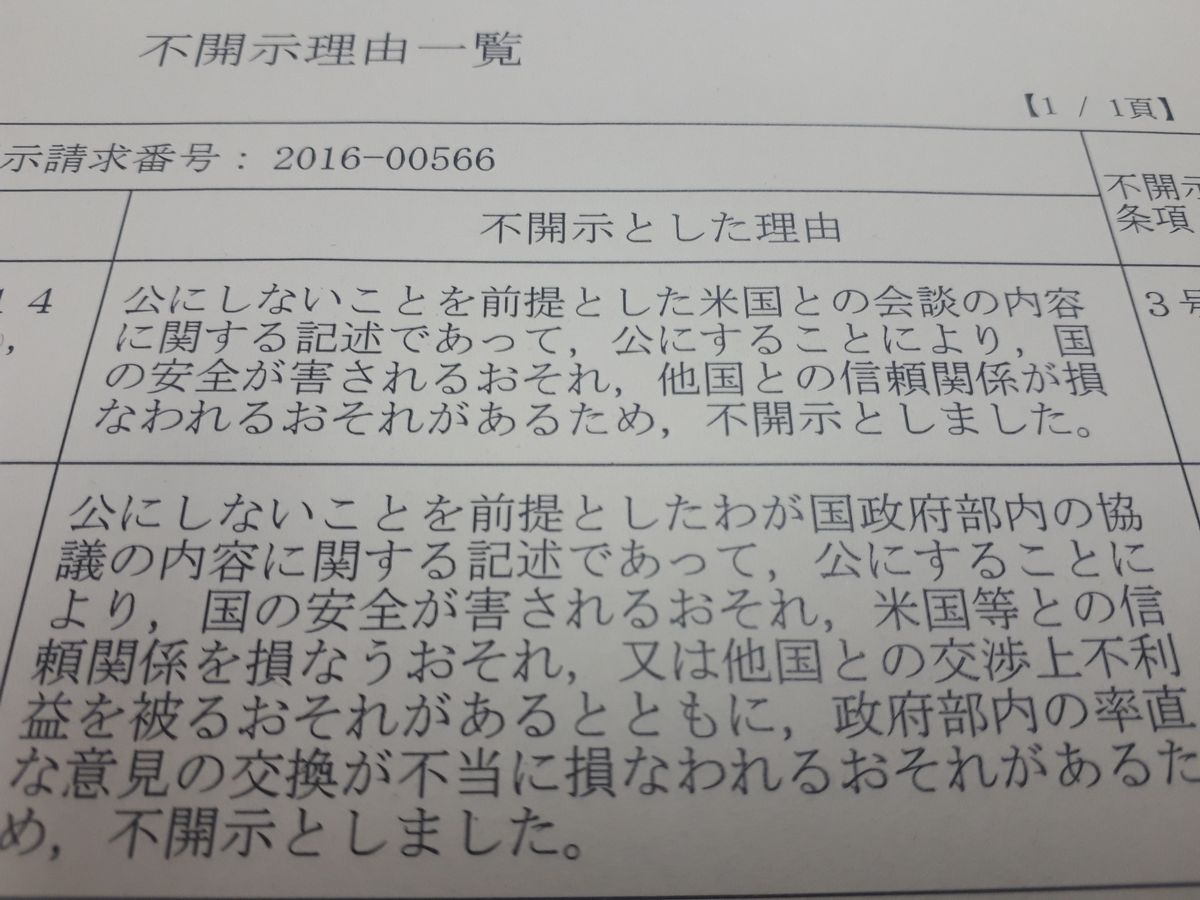 不開示理由一覧
【1 / 1頁】
示請求番号：2016-00566
不開示とした理由
不開示
条項
14
公にしないことを前提とした米国との会談の内容
に関する記述であって，公にすることにより，国
の安全が害されるおそれ，他国との信頼関係が損
なわれるおそれがあるため，不開示としました。
3号
公にしないことを前提としたわが国政府部内の協
議の内容に関する記述であって，公にすることに
より，国の安全が害されるおそれ，米国等との信
頼関係を損なうおそれ，又は他国との交渉上不利
益を被るおそれがあるとともに，政府部内の率直
な意見の交換が不当に損なわれるおそれがあるた
め，不開示としました。